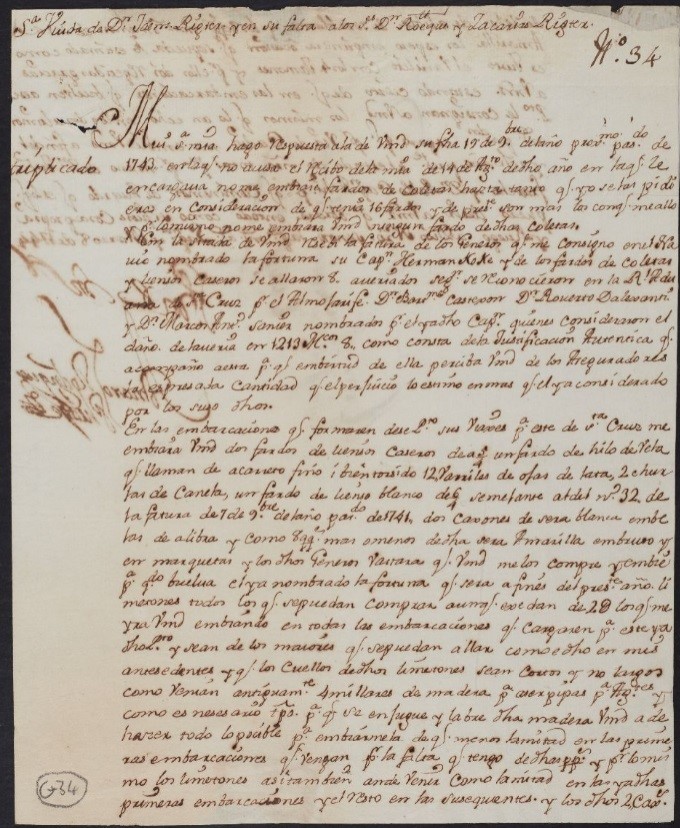 S.ra Viuda de D.n Jaime Rigter y en su falta a los S.res D.n Roeque y Zacarias Rigter.
N.o 34
triplicado
Mui S.ra mia, hago Repuesta a la de Vmd su fha 17 de 9.bre del año prox.mo pas.do de
1743 en la q.l no acusa el Recibo de la mia de 14 de Ag.to de dho año en la q.l le
encargava no me embiase fardos de coletas hasta tanto q.e yo se las pidi
era en consideracion de q.e tenia 16 fardos y de pres.te son mas los con q.e me allo
y p.r lo mismo no me embiara Vmd ningun fardo de dhas coletas.
Con la sitada de Vmd Recivi la fatura de los Generos q.e me consigno en el Na
vio nombrado la fortuna su Cap.n Herman Keke y de los fardos de coletas
y liensos caseros se allaron 8. averiados seg.n se Reconocieron en la R.l Adu
ana de S.ta Cruz p.r el Almojarife D.n Bar.me Castexon D.n Roverto Dalevanti
y D.n Marcos nombrados p.r el ya dho Cap.n quienes consideraron el
daño de la averia en 1213 R.s como consta de la Justificasion Autentica q.e
acompaño a esta p.a q.e en birtud de ella perciba Vmd de los Aseguradores
la espresada Cantidad q.e el perjuicio lo estimo en mas q.e el ya considerado
por los sugo dhos.
En las embarcaciones q.e formaren de ese P.to sus Viaxes p.a este de S.ta Cruz me
embiara Vmd dos fardos de liensos Caseros de un fardo de hilo de Vela
q.e llaman de acarreto fino i bien torsido 12 Varriles de ojas de lata, 2 chur
las de Canela, un fardo de lienso blanco de semejante al del N.o 32. de
la fatura de 7 de 9.bre del año pas.do de 1741, dos caxones de sera blanca en be
las de a libra y como 8 qq.s mas o menos de dha sera Amarilla en bruto y
en marquetas y los dhos Generos vastara q.e Vmd me los compre y embie
p.a q.do buelva el ya nombrado la fortuna q.e sera a fines del pres.te año. li
metones todos los q.e se puedan comprar aunq.e exedan de 2D los q.e me
yra Vmd embiando en todas las embarcaciones q.e Cargaren p.a este ya
dho P.to y sean de los maiores q.e se puedan allar como e dho en mis
antesedentes y q.e los Cuellos de dhos limetones sean Cortos y no largos
como Venian antiguam.te 4 millares de madera p.a aser pipas p.a Ag.tes y
como es nesesario tpo. p.a q.e se enjugue y labre dha madera Vmd a de
haser todo lo posible p.a embiarmela de q.e menos la mitad en las prime
ras embarcaciones q.e Vengan p.r la falta q.e tengo de dhas pp.s y p.r lo mis
mo los limetones asi tambien an de Venir Como la mitad en las ya dhas
primeras embarcaciones y el Resto en las susequentes. y los dhos 2 Caxo.s
G34